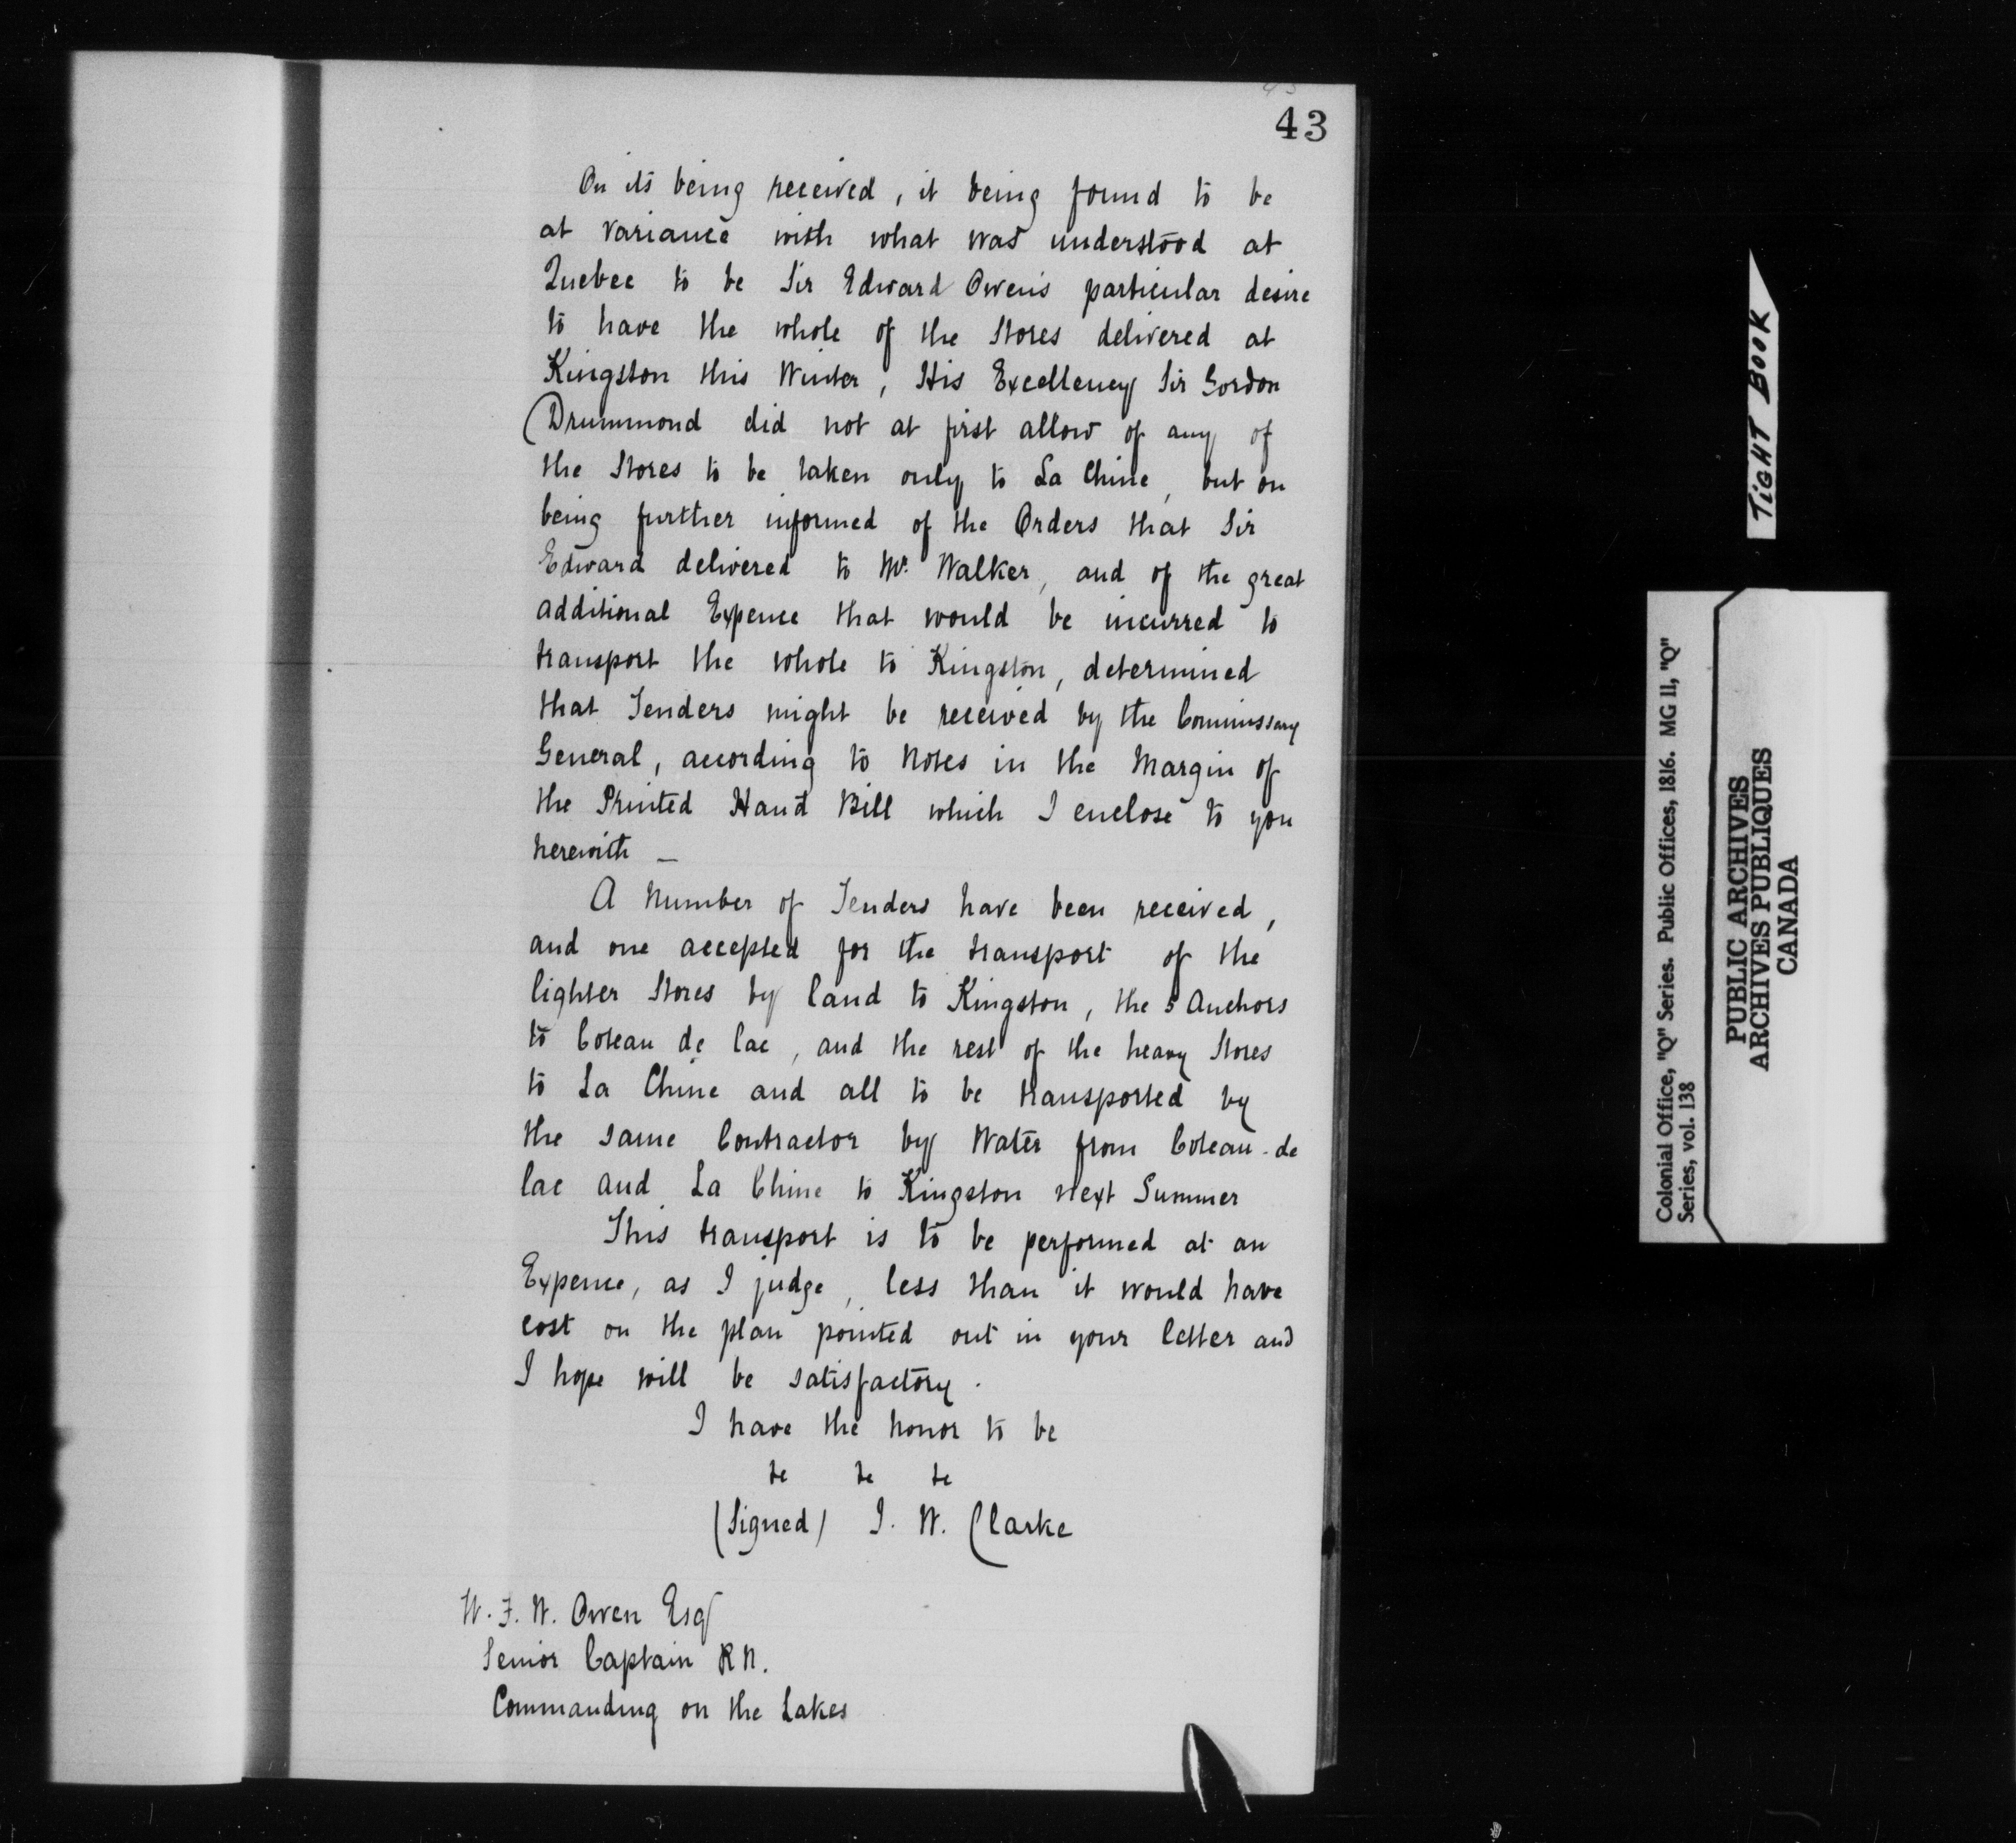 43
On its being received, it being found to be
at variance with what was understood at
Quebec to be Sir Edward Owen's particular desire
to have the whole of the Stores delivered at
Kingston this Winter, His Excellency Sir Gordon
Drummond did not at first allow of any of
the Stores to be taken only to La Chine, but on
being further informed of the Orders that Sir
Edward delivered to Mr. Walker, and of the great
additional Expence that would be incurred to
transport the whole to Kingston, determined
that Tenders might be received by the Commissary
General, according to Notes in the Margin of
the Printed Hand Bill which I enclose to you
herewith —
A Number of Tenders have been received,
and one accepted for the transport of the
lighter Stores by land to Kingston, the 5 Anchors
to Coteau de lac, and the rest of the heavy Stores
to La Chine and all to be transported by
the same Contractor by Water from Coteau-de
lac and La Chine to Kingston next Summer
This transport is to be performed at an
Expence, as I judge, less than it would have
cost on the plan pointed out in your letter and
I hope will be satisfactory.
I have the honor to be
&c &c &c
(Signed) I. W. Clarke
W. F. W. Owen Esqr
Senior Captain R N.
Commanding on the Lakes
TIGHT BOOK
Colonial Office, "Q" Series. Public Offices, 1816. MG 11, "Q"
Series, vol. 138
PUBLIC ARCHIVES
ARCHIVES PUBLIQUES
CANADA